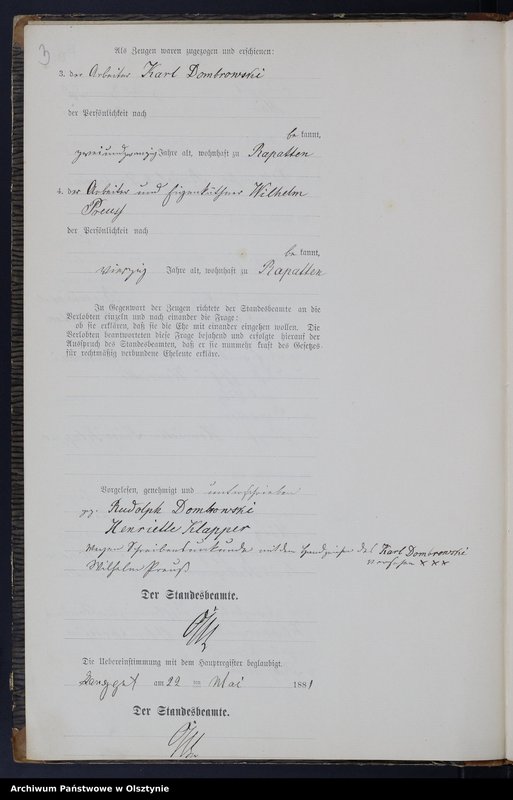 3
Als Zeugen waren zugezogen und erschienen:
3. der Arbeiter Karl Dombrowski
der Persönlichkeit nach
be kannt,
zweiundzwanzig Jahre alt, wohnhaft zu Rapatten
4. der Arbeiter und Eigenkäthner Wilhelm
Preuß
der Persönlichkeit nach
be kannt,
vierzig Jahre alt, wohnhaft zu Rapatten
In Gegenwart der Zeugen richtete der Standesbeamte an die
Verlobten einzeln und nach einander die Frage:
ob sie erklären, daß sie die Ehe mit einander eingehen wollen. Die
Verlobten beantworteten diese Frage bejahend und erfolgte hierauf der
Ausspruch des Standesbeamten, daß er sie nunmehr kraft des Gesetzes
für rechtmäßig verbundene Eheleute erkläre.
Vorgelesen, genehmigt und unterschrieben
Rudolph Dombrowski
Henriette Klapper
wegen Schreibensunkunde mit dem Handzeichen des Karl Dombrowski
versehen XXX
Wilhelm Preuß
Der Standesbeamte.
Die Uebereinstimmung mit dem Hauptregister beglaubigt.
am 22 ten Mai 1881
Der Standesbeamte.
Archiwum Państwowe w Olsztynie